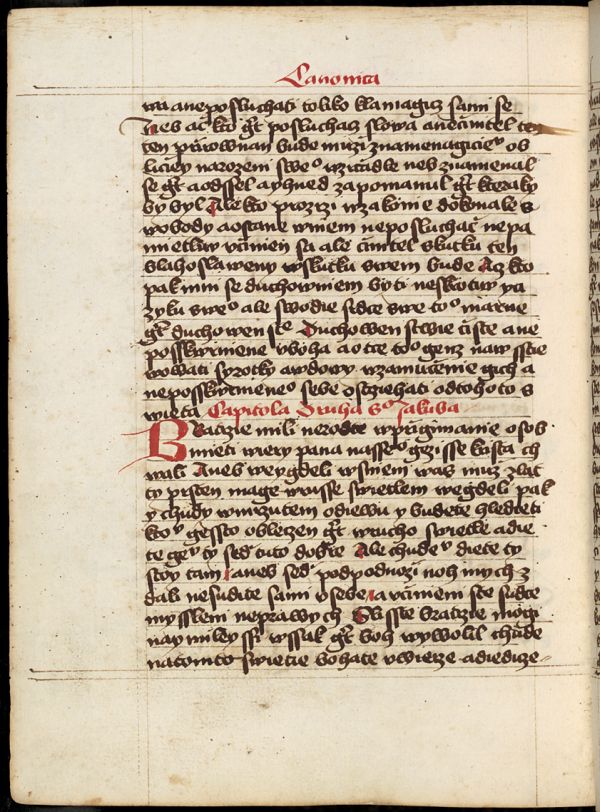 Canonica
wu a ne posluchati toliko klamagicz sami se
Neb ač kto gᵗ posluchacz slowa a ne činitel ten
ten přirownan bude muzi znamenagiciᵉᵒ ob
licieg narozeni sweᵒ w zrcadle neb znamenal
se gᵗ a odssel a yhned zapomanul gᵗ kteraky
by byl Ale kto prozrzi w zakonie dokonale s
wobody a ostane w niem ne posluchač nepa
mietliw učinien sa ale činitel skutku ten
blahoslaweny w skutku swem bude A cz kto
pak mni se duchowniem byti ne skrotiw ya
zyku sweᵒ ale swodie srdce swe toᵒ marne
gᵗ duchowenstᵉ Duchowenstwie čiste a ne
posskwrnene v boha a otce toᵒ genz nawsstie
wowati syrotky a wdowy w zamucenie gich a
neposskwrneneᵒ sebe ostrziehati od tohoto s
wieta Capitola Druha Sᵒ Jakuba
Bratrzie mili nerodte w prigimanie osob
mieti wiery pana nasseᵒ gezisse krista ch
wali A neb weygdeli w sniem was muz zlat
ty prsten mage w russe swietlem wegdeli pak
y chudy w mrzutem odiewu y budete hledieti
ktoᵘ gessto obleczen gᵗ w rucho swietle a die
te geᵘ ty sed tuto dobrze Ale chudeᵘ diete ty
stoy tam a neb sed pod podnozi noh mych z
dali nesudite sami v sebe a učinieni ste sudce
myssleni neprawych Slysste bratrzie mogi
naymileyssi wssak gᵗ boh wywolil chude
na tomto swietie bohate v wierze a diedicze